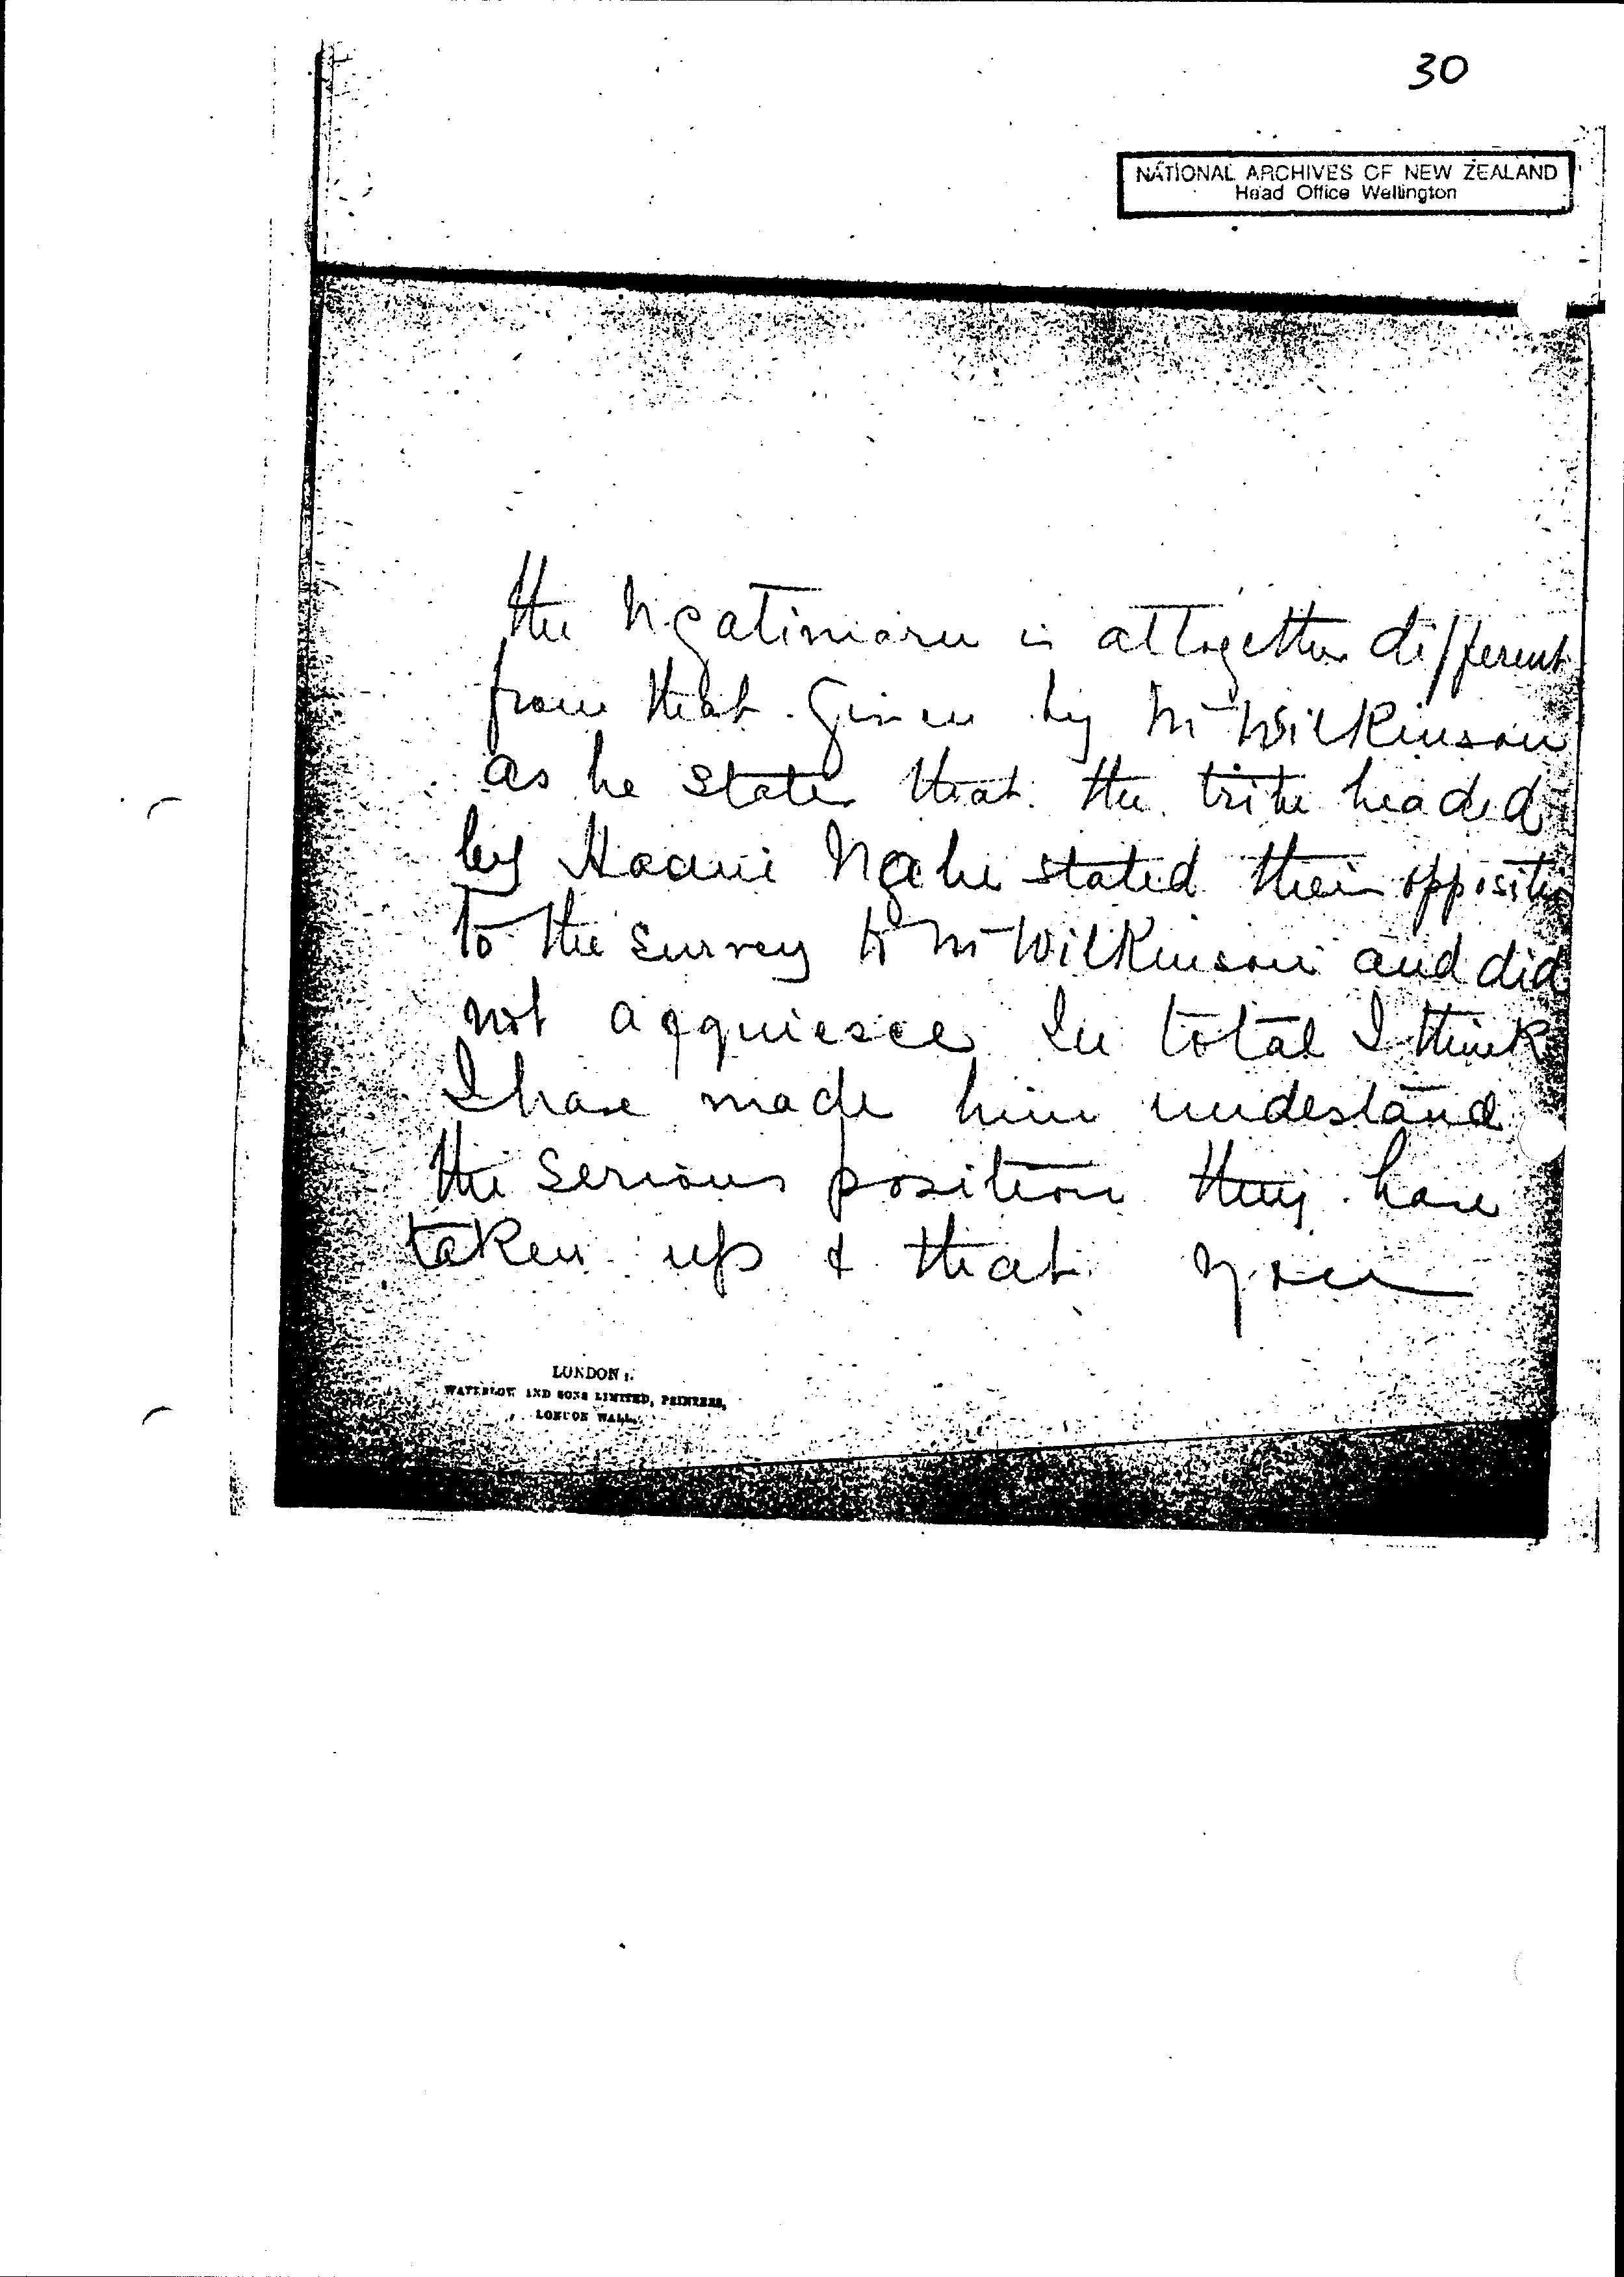 30
NATIONAL ARCHIVES OF NEW ZEALAND
Head Office Wellington
the Ngatimaru is altogether different
from that given by Mr Wilkinson
as he states that the tribe headed
by Hoani Nahe stated their oppositn
to the survey to Mr Wilkinson and did
not acquiesce. In total I think
I have made him undestand
the serious position they have
taken up & that you
LONDON:
WATERLOW AND SONS LIMITED, PRINTERS,
LONDON WALL.